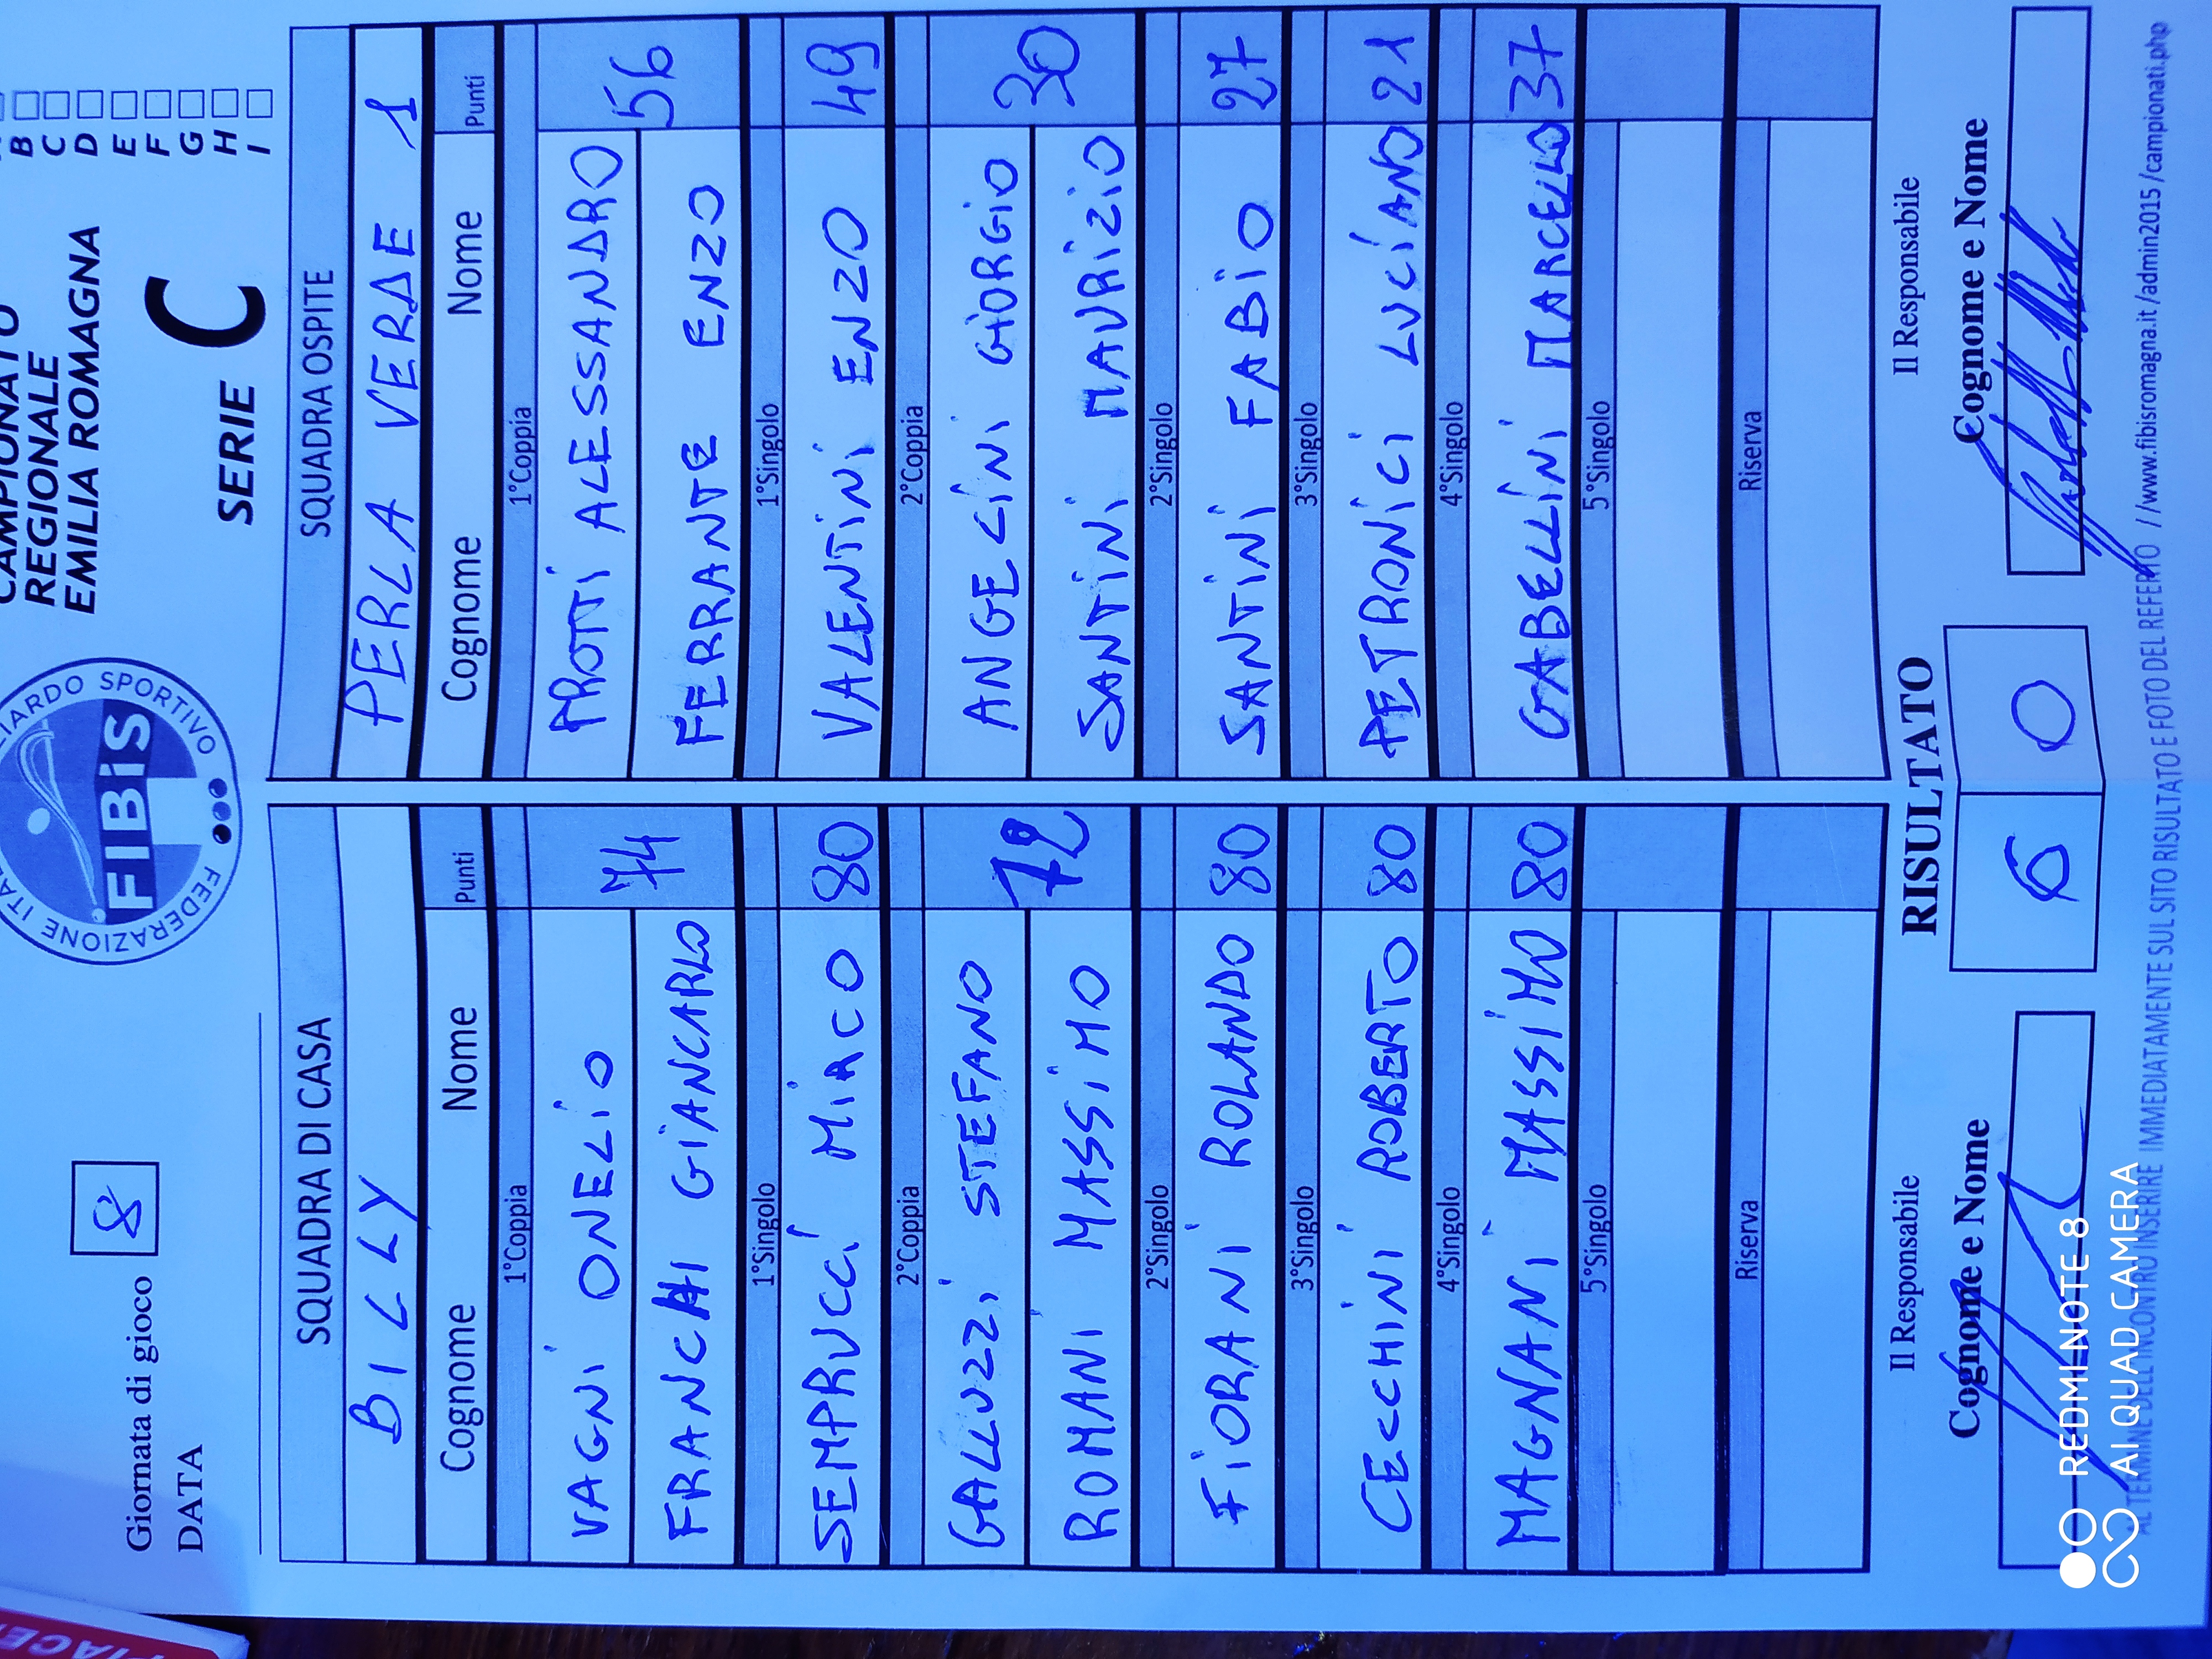 CAMPIONATO
REGIONALE
EMILIA ROMAGNA
SERIE C
B
C
D
E
F
G
H
I
FIBiS
Giornata di gioco 8
DATA
SQUADRA DI CASA
BILLY
Cognome Nome Punti
1°Coppia
VAGNI ONELIO
FRANCHI GIANCARLO
74
1°Singolo
SEMPRUCCI MIRCO 80
2°Coppia
GALLUZZI STEFANO
ROMANI MASSIMO
72
2°Singolo
FIORANI ROLANDO 80
3°Singolo
CECCHINI ROBERTO 80
4°Singolo
MAGNANI MASSIMO 80
5°Singolo
Riserva
SQUADRA OSPITE
PERLA VERDE 1
Cognome Nome Punti
1°Coppia
PROTTI ALESSANDRO
FERRANTE ENZO
56
1°Singolo
VALENTINI ENZO 49
2°Coppia
ANGELINI GIORGIO
SANTINI MAURIZIO
30
2°Singolo
SANTINI FABIO 27
3°Singolo
PETRONICI LUCIANO 21
4°Singolo
GABELLINI MARCELLO 37
5°Singolo
Riserva
Il Responsabile
Cognome e Nome
RISULTATO
6 0
Il Responsabile
Cognome e Nome
AL TERMINE DELL'INCONTRO INSERIRE IMMEDIATAMENTE SUL SITO RISULTATO E FOTO DEL REFERTO //www.fibisromagna.it/admin2015/campionati.php
REDMI NOTE 8
AI QUAD CAMERA